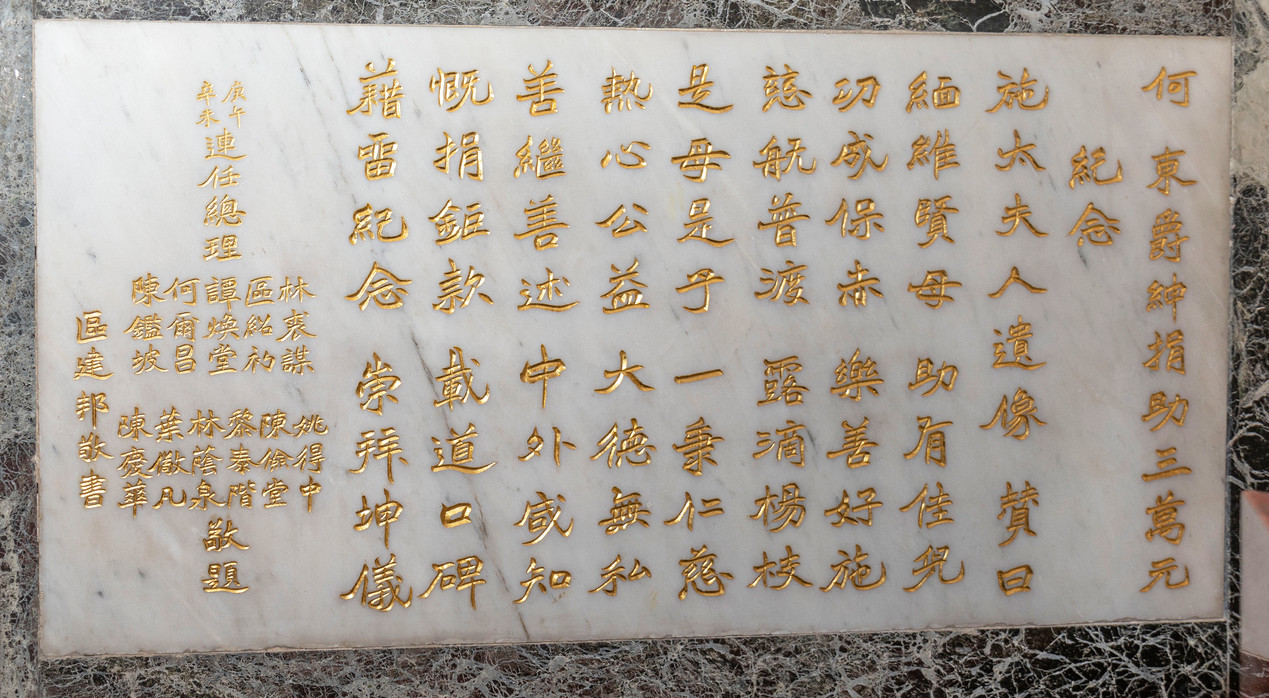 何東爵紳捐助三萬元
紀念
施太夫人遺像 贊曰
緬維賢母 助有佳兒
功成保赤 樂善好施
慈航普渡 露滴楊枝
是母是子 一秉仁慈
熱心公益 大德無私
善繼善述 中外咸知
慨捐鉅款 載道口碑
藉留紀念 崇拜坤儀
庚午
辛未
連任總理
林裘謀 姚得中
區紹初 陳儉堂
譚煥堂
何爾昌 林蔭泉
陳鑑坡 葉儆凡
敬題
區建邦敬書